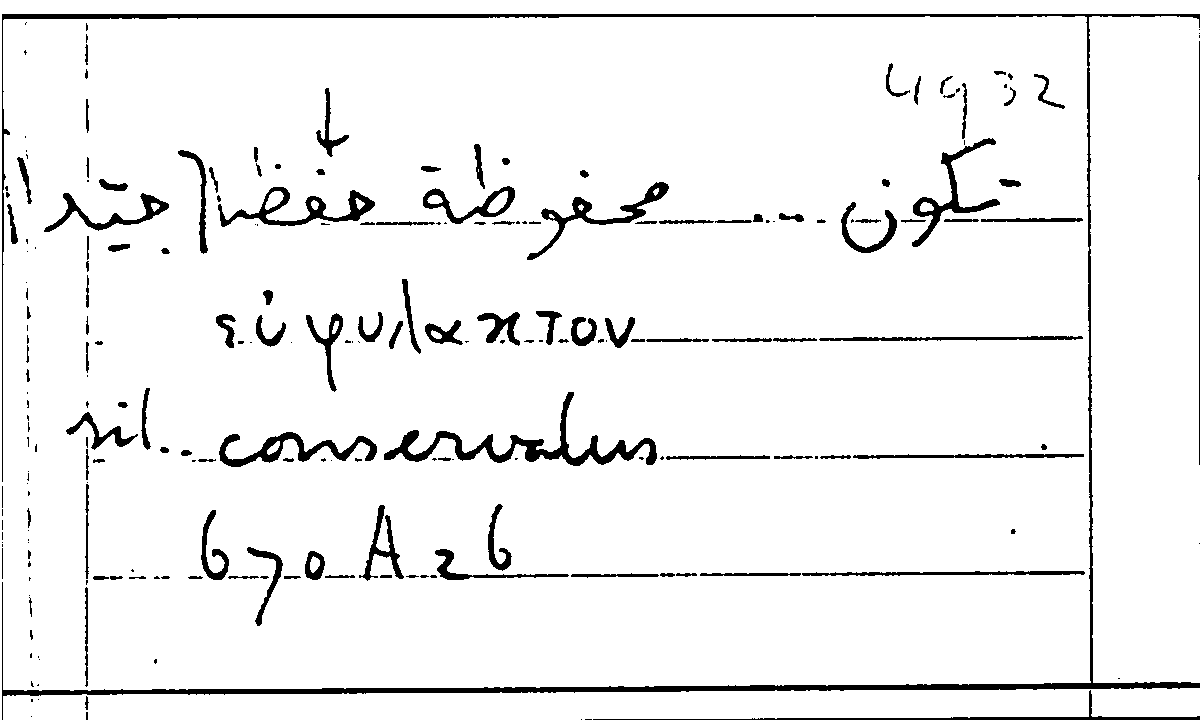 4932
تكون ... محفوظة حفظا جيّدا
εὐφυλακτον
sit .. conservatus
670 A 26